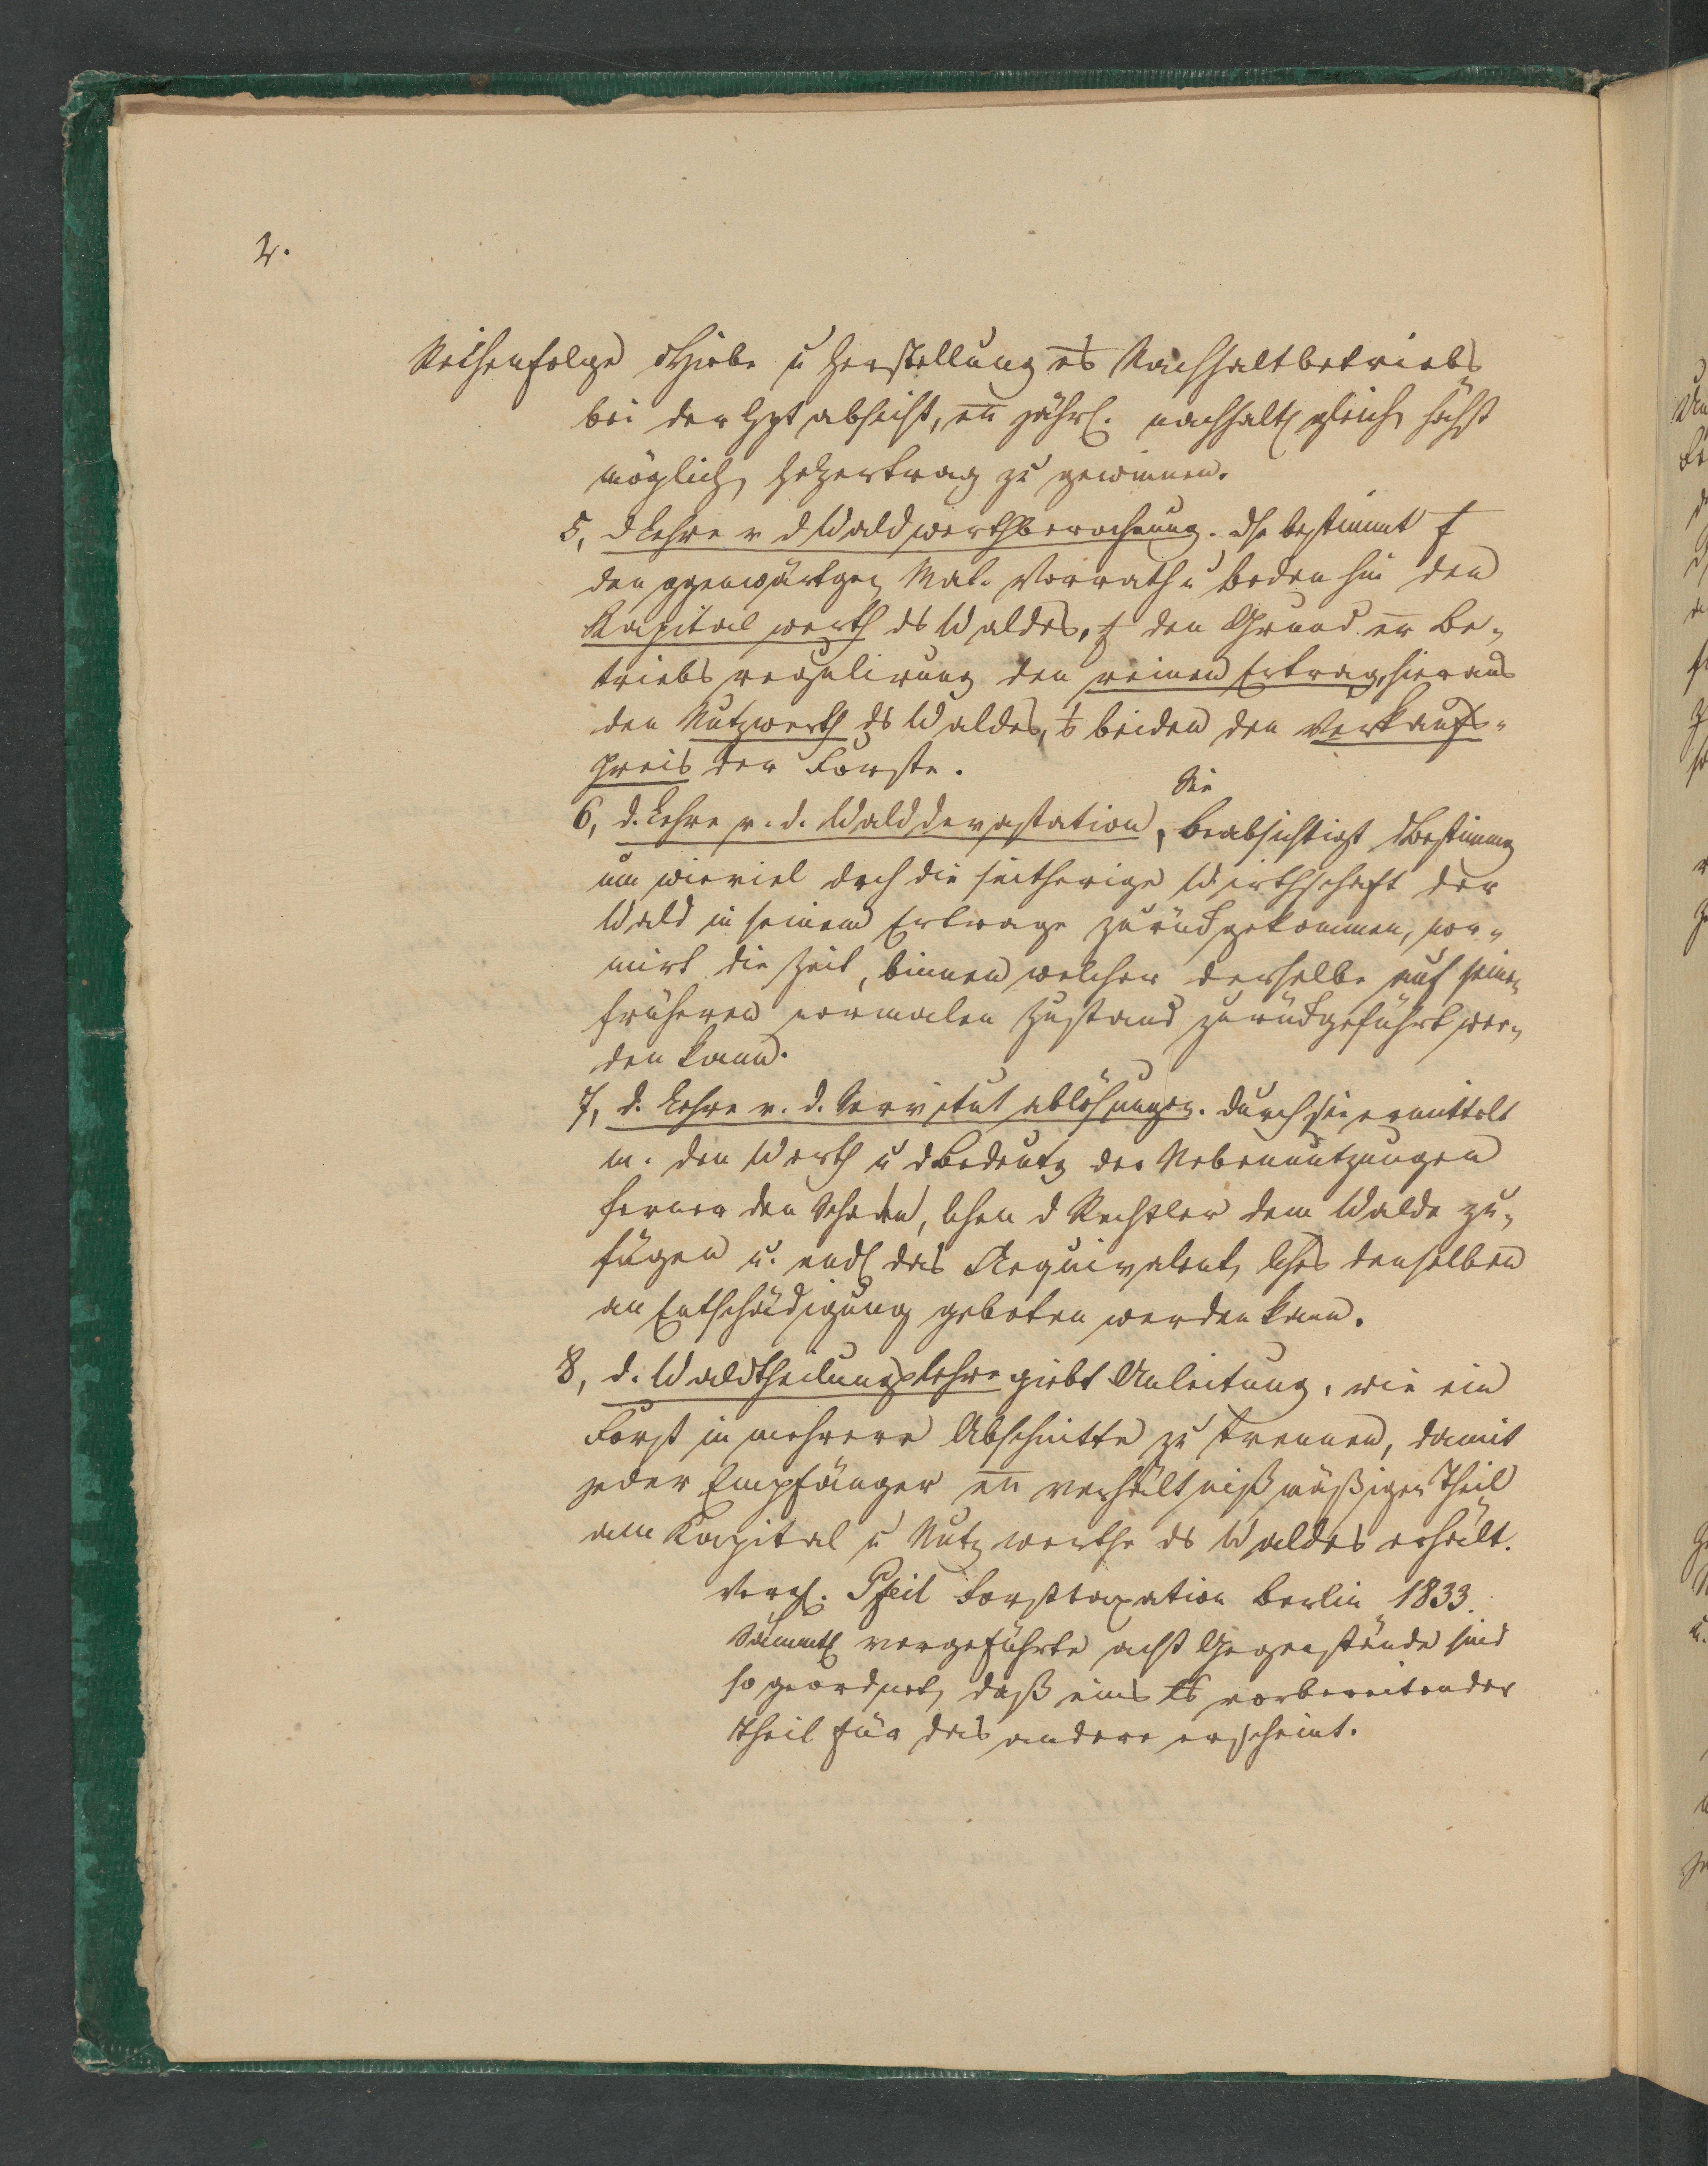 2.
Reihenfolge d Hiebe u Herstellung es Nachhaltbetriebs
bei der Hptabsicht, en jährl. nachhalt gleich höchst
möglich Holzertrag zu gewinnen.
5, d Lehre v d Waldwerthberechnung. Dse bestimmt
den ggenwärtgen Mat. Vorrath u Boden hin den
Kapitalwerth ds Waldes, den Grund er Be-
triebsregulirung den reinen Ertrag, hieraus
den Nutzwerth ds Waldes, beiden den Verkaufs-
preis der Forste.
6, d. Lehre v. d. Walddevastation, Sie beabsichtigt d Bestimmg
um wieviel dch die seitherige Wirthschaft der
Wald in seinem Ertrage zurückgekommen, nor-
mirt die Zeit, binnen welcher derselbe auf seinen
früheren normalen Zustand zurückgeführt wer-
den kann.
7, d. Lehre v. d. Servitutablösungen. Durch sie ermittelt
m. den Werth u d Bedeutg der Nebennutzungen
ferner den Schaden, lchen d Rechtler dem Walde zu-
fügen u. endl das Aequivalent, lches denselben
an Entschädigung geboten werden kann.
8, d. Waldtheilungslehre giebt Anleitung, wie ein
Forst in mehrere Abschnitte zu trennen, damit
jeder Empfänger en verhältnißmäßigen Theil
am Kapital u Nutzwerthe ds Waldes erhält.
Vergl. Pfeil Forsttaxation Berlin 1833.
Sämmtl vorgeführte acht Gegenstände sind
so geordnet, daß eins ls vorbereitender
Theil für das andere erscheint.